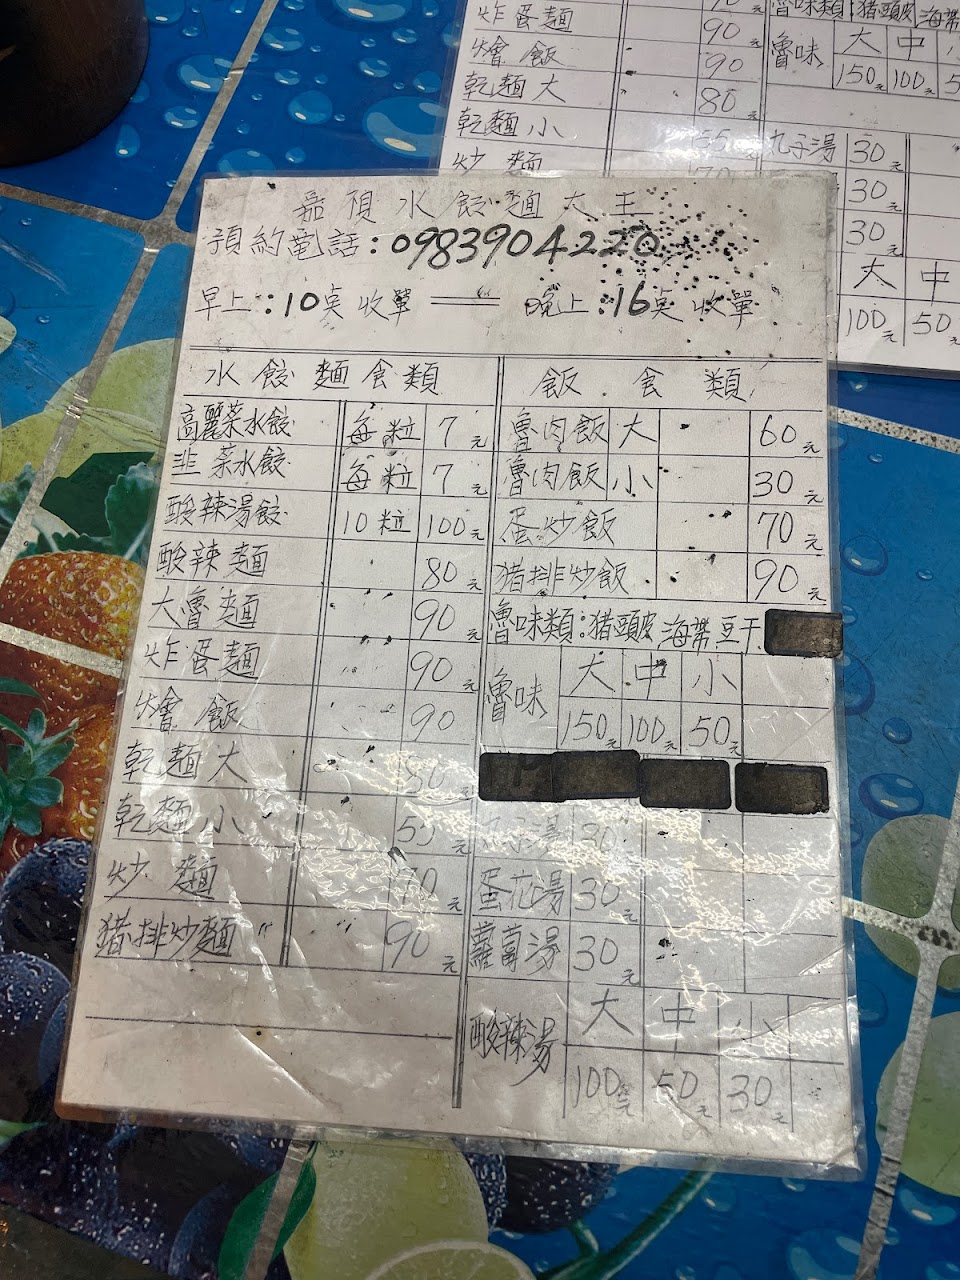 炸蛋麵 90元
燴飯 90
乾麵大 80元
乾麵小 55元
炒麵 70
魯味類:猪頭皮海帶
魯味 大 中
150元 100元
丸子湯 30元
30元
30元
大 中
100元 50元
水餃麵大王
預約電話:0983904220
早上:10点收單 晚上:16点收單
水餃麵食類
高麗菜水餃 每粒 7元
韭菜水餃 每粒 7元
酸辣湯餃 10粒 100元
酸辣麵 80元
大魯麵 90元
炸蛋麵 90元
燴飯 90元
乾麵大 80元
乾麵小 55元
炒麵 70元
猪排炒麵 90元
飯食類
魯肉飯 大 60元
魯肉飯 小 30元
蛋炒飯 70元
猪排炒飯 90元
魯味類:猪頭皮海帶豆干
魯味 大 中 小
150元 100元 50元
丸子湯 30元
蛋花湯 30元
蘿蔔湯 30元
酸辣湯 大 中 小
100元 50元 30元